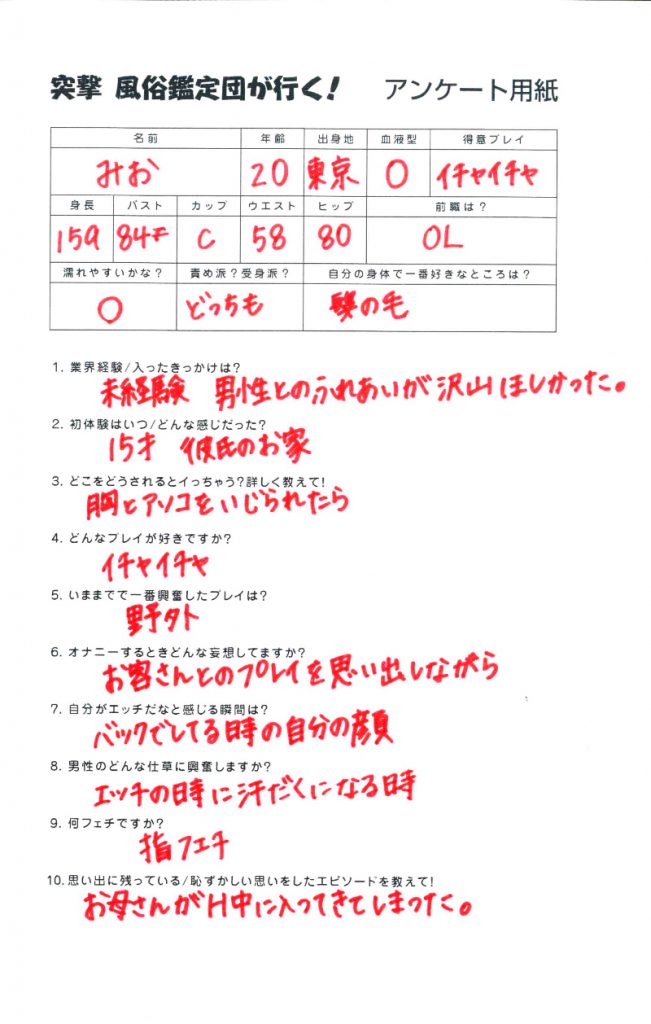 突撃 風俗鑑定団が行く! アンケート用紙
名前 年齢 出身地 血液型 得意プレイ
みお 20 東京 O イチャイチャ
身長 バスト カップ ウエスト ヒップ 前職は?
159 84 C 58 80 OL
濡れやすいかな? 責め派?受身派? 自分の身体で一番好きなところは?
○ どっちも 髪の毛
1. 業界経験/入ったきっかけは?
未経験 男性とのふれあいが沢山ほしかった。
3. どこをどうされるとイっちゃう?詳しく教えて!
胸とアソコをいじられたら
4. どんなプレイが好きですか?
イチャイチャ
5. いままでで一番興奮したプレイは?
野外
6. オナニーするときどんな妄想してますか?
お客さんとのプレイを思い出しながら
7. 自分がエッチだなと感じる瞬間は?
バックでしてる時の自分の顔
8. 男性のどんな仕草に興奮しますか?
エッチの時に汗だくになる時
9. 何フェチですか?
指フェチ
10. 思い出に残っている/恥ずかしい思いをしたエピソードを教えて!
お母さんがH中に入ってきてしまった。